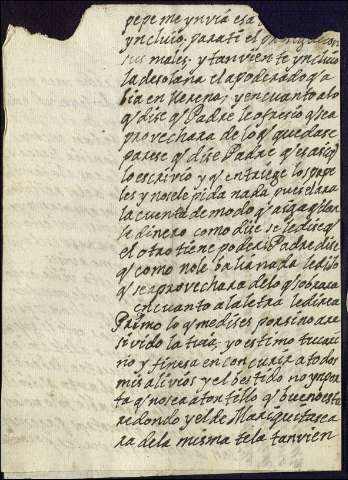 pepe me ynvia esa
yncluio, para ti el
sus males, y tanvien te yncluio
la de solana el apoderado q a
bia en Xerena, y en cuanto a lo
q dise q Padre le ofresio q se a
provechara de lo q quedase
parese q dise Padre q es asi q
lo escrivio y q entriege los pape
les y no se le pida nada pues dara
la cuenta de modo q aiga q
le dinero como dise se le dise q
el otro tiene poder i Padre dise
q como no le balia nada le dijo
q se aprovechara de lo q sobrara
en cuanto a la letra le dira
Primo lo q me dises por si no a re
sivido la tuia, yo estimo tu cari
no y finesa en concurir a todos
mis alivios y el bestido no ynpor
ta q no sea a tontillo q bueno esta
redondo y el de Mariquita se a
ra de la misma tela tanvien